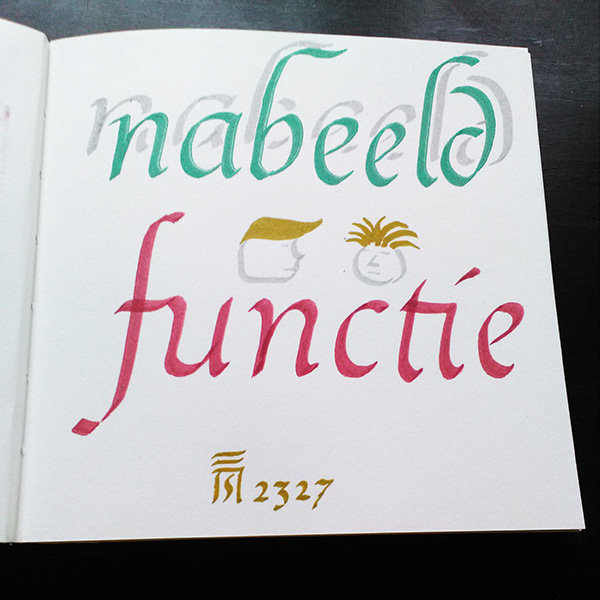 nabeeld
functie
2327